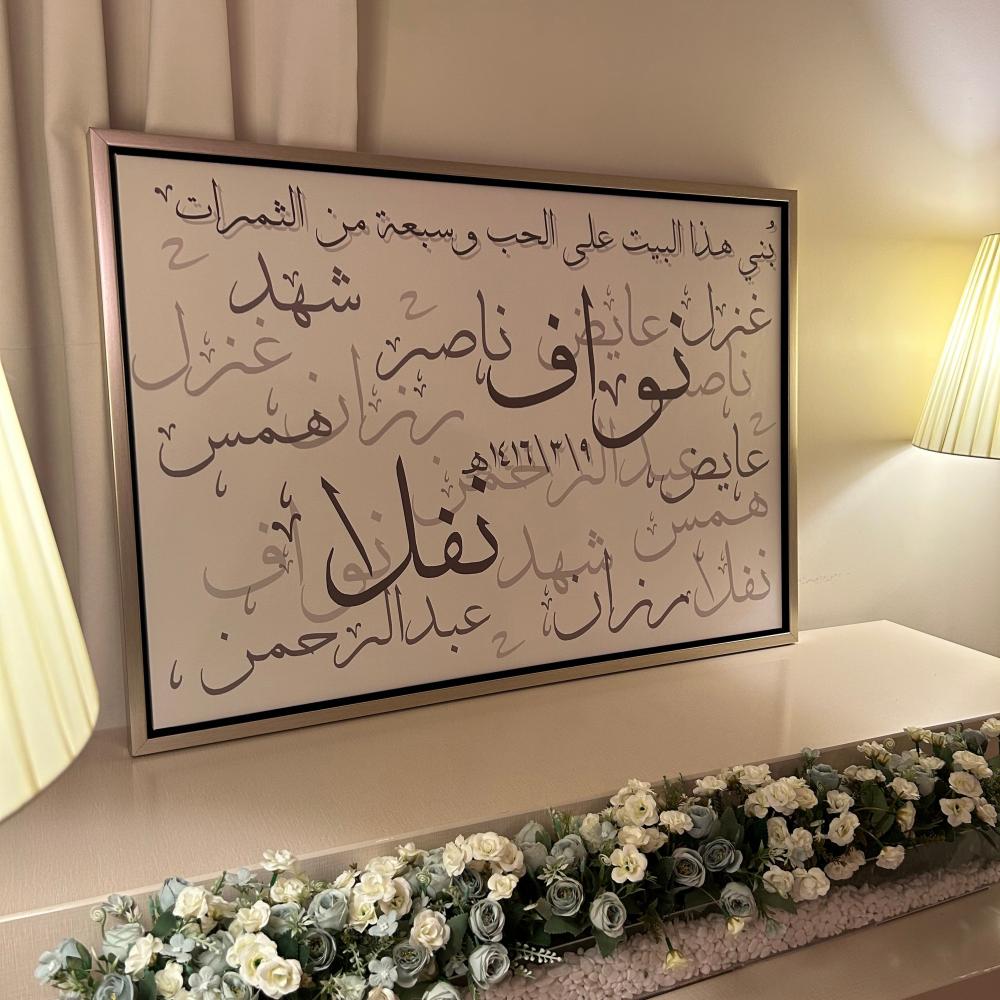 بُني هذا البيت على الحب وسبعة من الثمرات
شهد
غزل عايض ناصر
نواف
غزل رزان ناصر
همس عايض
١٤١٦/٣/٩هـ
عبدالرحمن
نفلا همس
نواف شهد نفلا
عبدالرحمن رزان